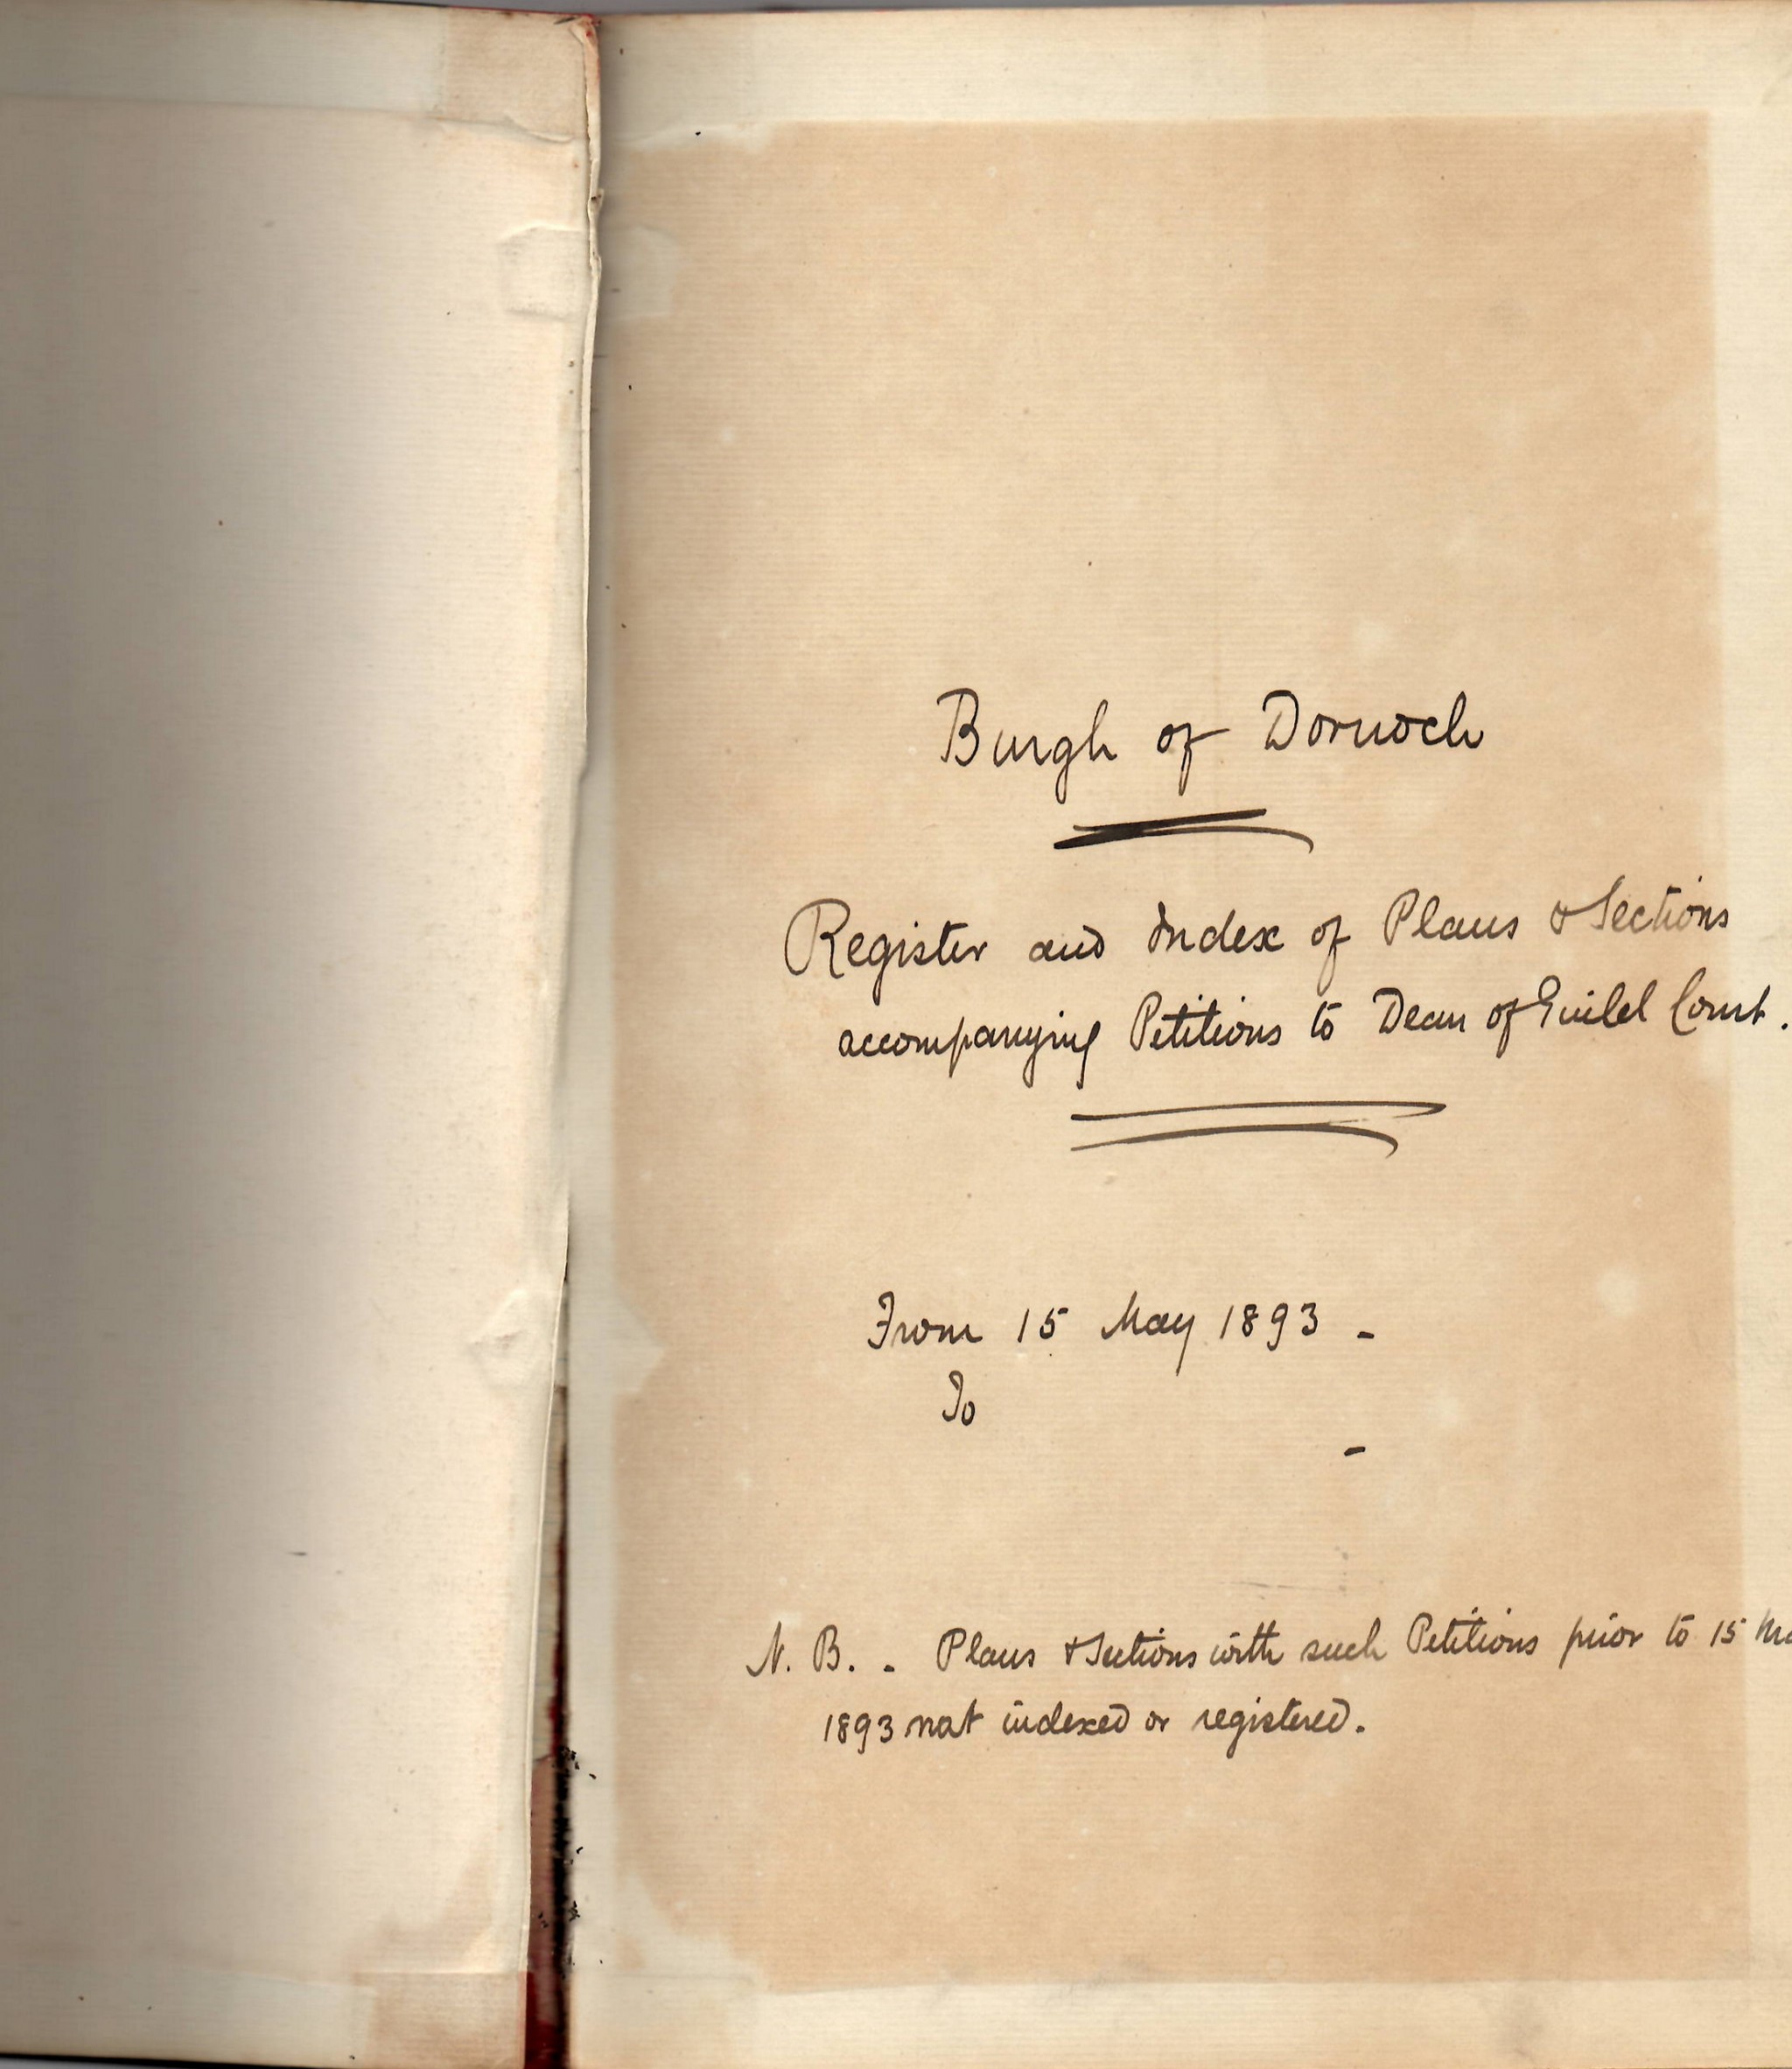 Burgh of Dornoch
Register and Index of Plans & Sections
accompanying Petitions to Dean of Guild Court.
From 15 May 1893 -
To
-
N. B. - Plans & Sections with such Petitions prior to 15 Ma
1893 not indexed or registered.